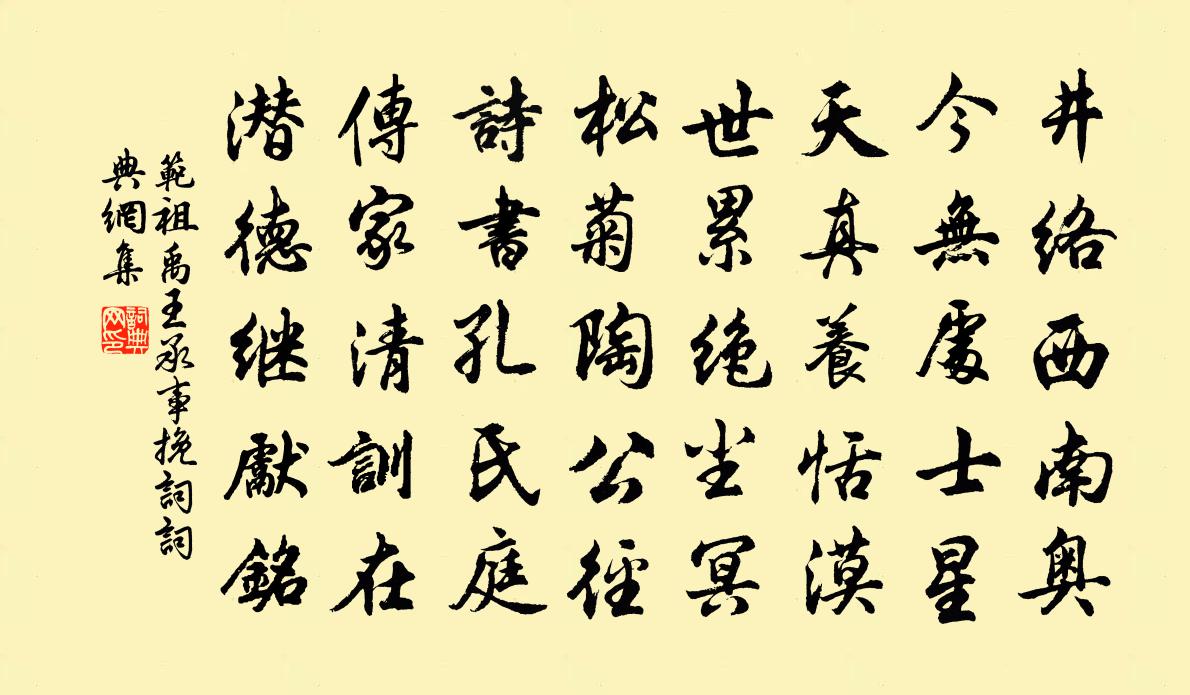 井络西南奥
今無處士星
天真養恬漠
世累绝尘冥
松菊陶公徑
詩書孔氏庭
傳家清訓在
潜德继獻銘
範祖禹王承事挽詞詞
典網集
詞典
网印